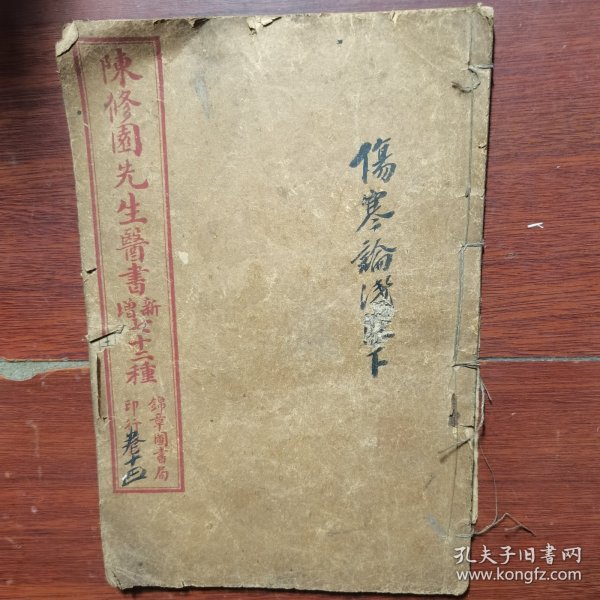 陳修園先生醫書新增七十二種
錦章圖書局印行
卷十四
傷寒論淺註下
孔夫子旧书网
www.kongfz.com